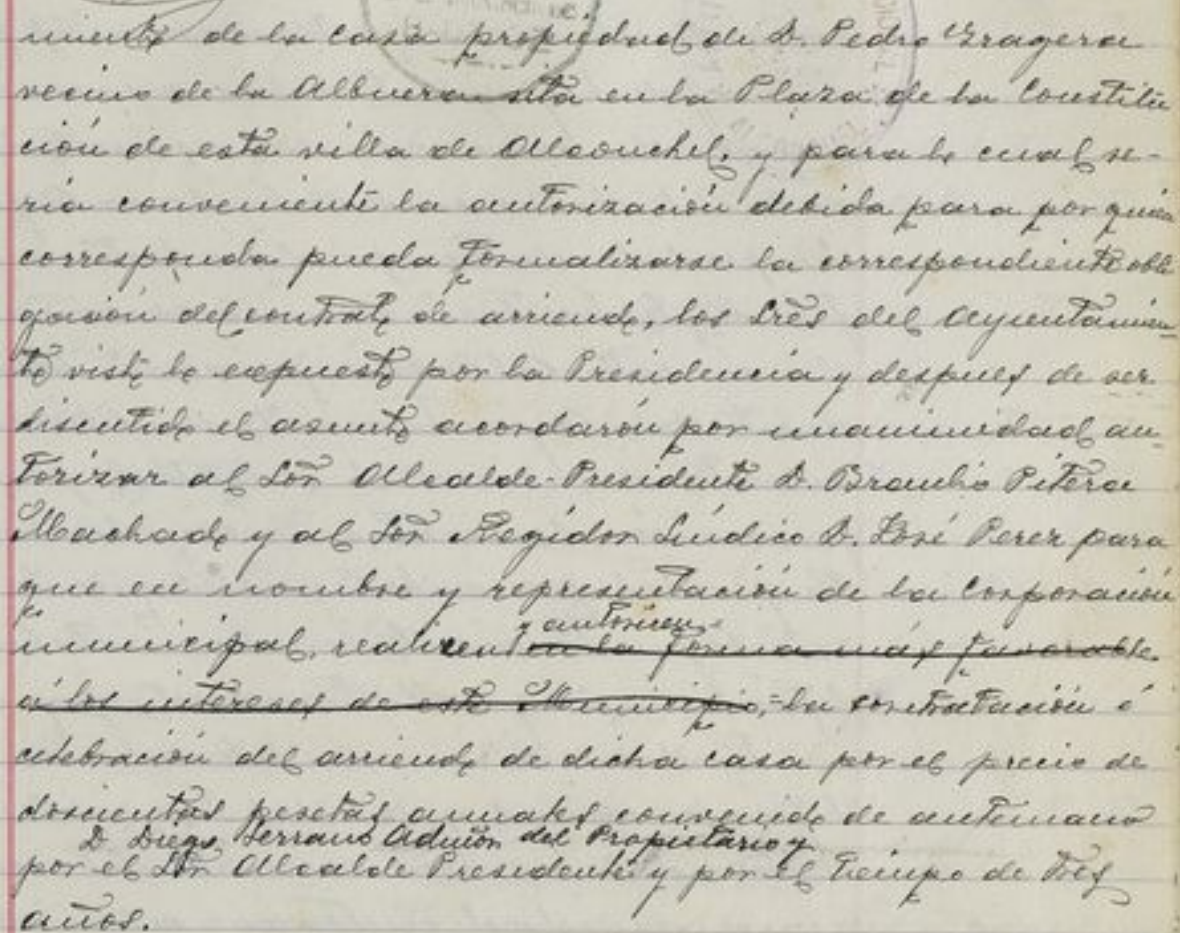 miento de la casa propiedad de D. Pedro Gragera
vecino de la Albuera sita en la Plaza de la Constitu
ción de esta villa de Alconchel, y para lo cual se-
ria conveniente la autorización debida para por quien
corresponda pueda formalizarse la correspondiente obli
gación del contrato de arriendo, los Sres del Ayuntamien-
to visto lo expuesto por la Presidencia y despues de ser
discutido el asunto acordarón por unanimidad au-
torizar al Sor Alcalde-Presidente D. Braulio Pitera
Machado y al Sor Regidor Sindico D. José Perez para
que en nombre y representación de la Corporación
y autoricen=
municipal, realicen en la forma más favorable
á los intereses de este Municipio,=la contratación ó
celebración del arriendo de dicha casa por el precio de
doscientas pesetas anuales convenido de antemano
D Diego Serrano Admon del Propietario y
por el Sor Alcalde Presidente y por el tiempo de tres
años.